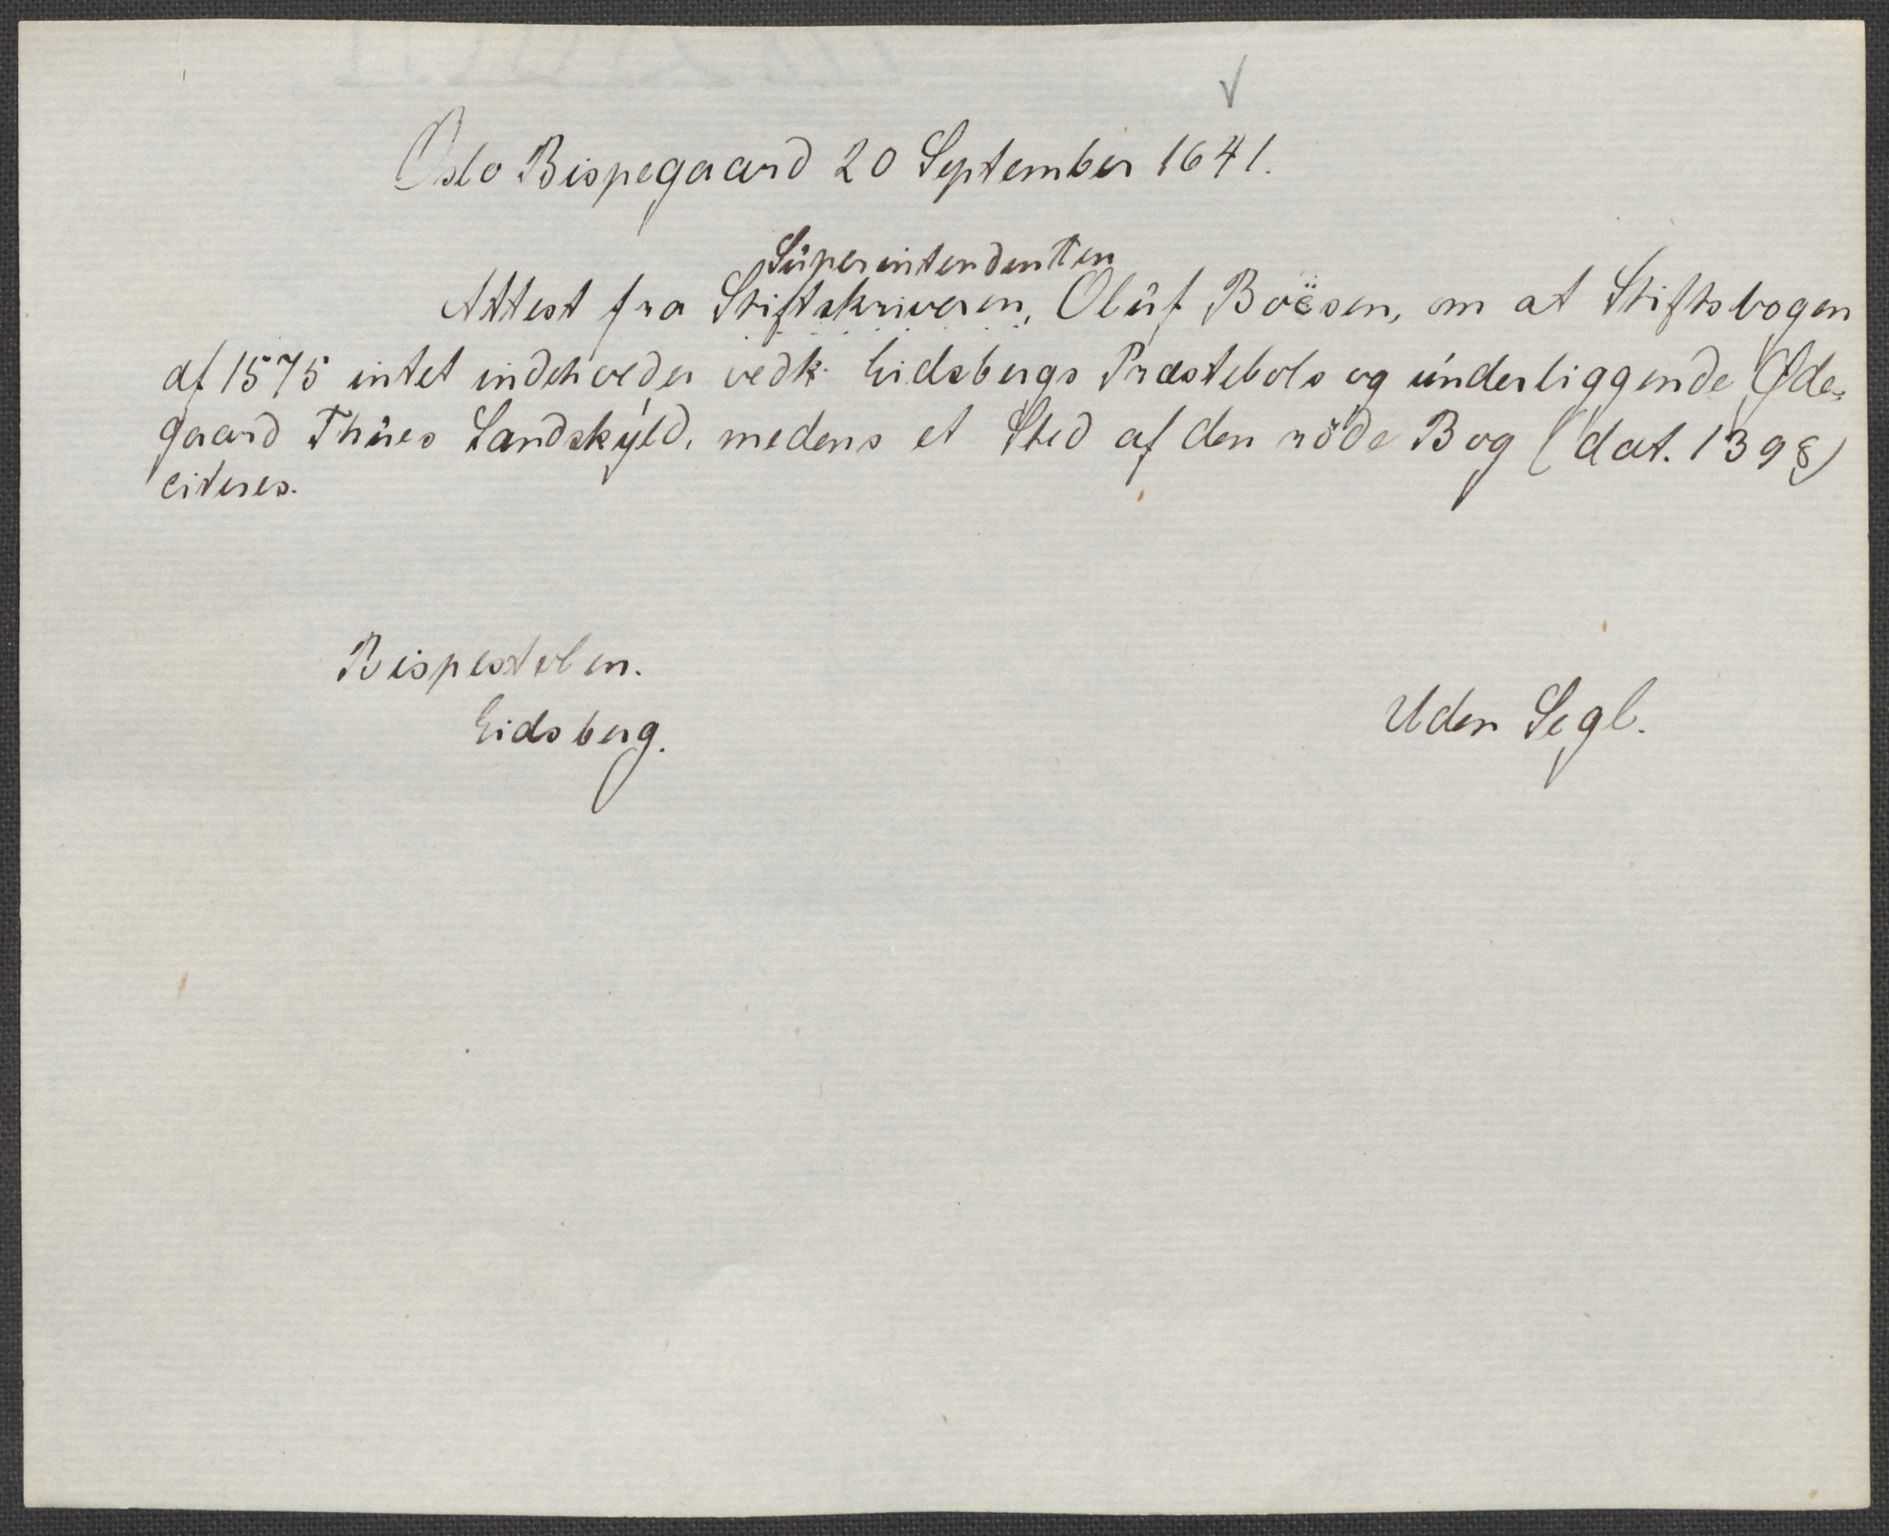 Oslo Bispegaard 20 September 1641.
Superintendenten
Attest fra Stiftskriveren, Oluf Boësen, om at Stiftsbogen
af 1575 intet indeholder vedk. Eidsbergs Præstebols og underliggende Øde-
gaard Thues Landskyld, medens et Sted af den röde Bog (dat. 1398)
citeres.
Bispestolen.
Eidsberg.
Uden Segl.